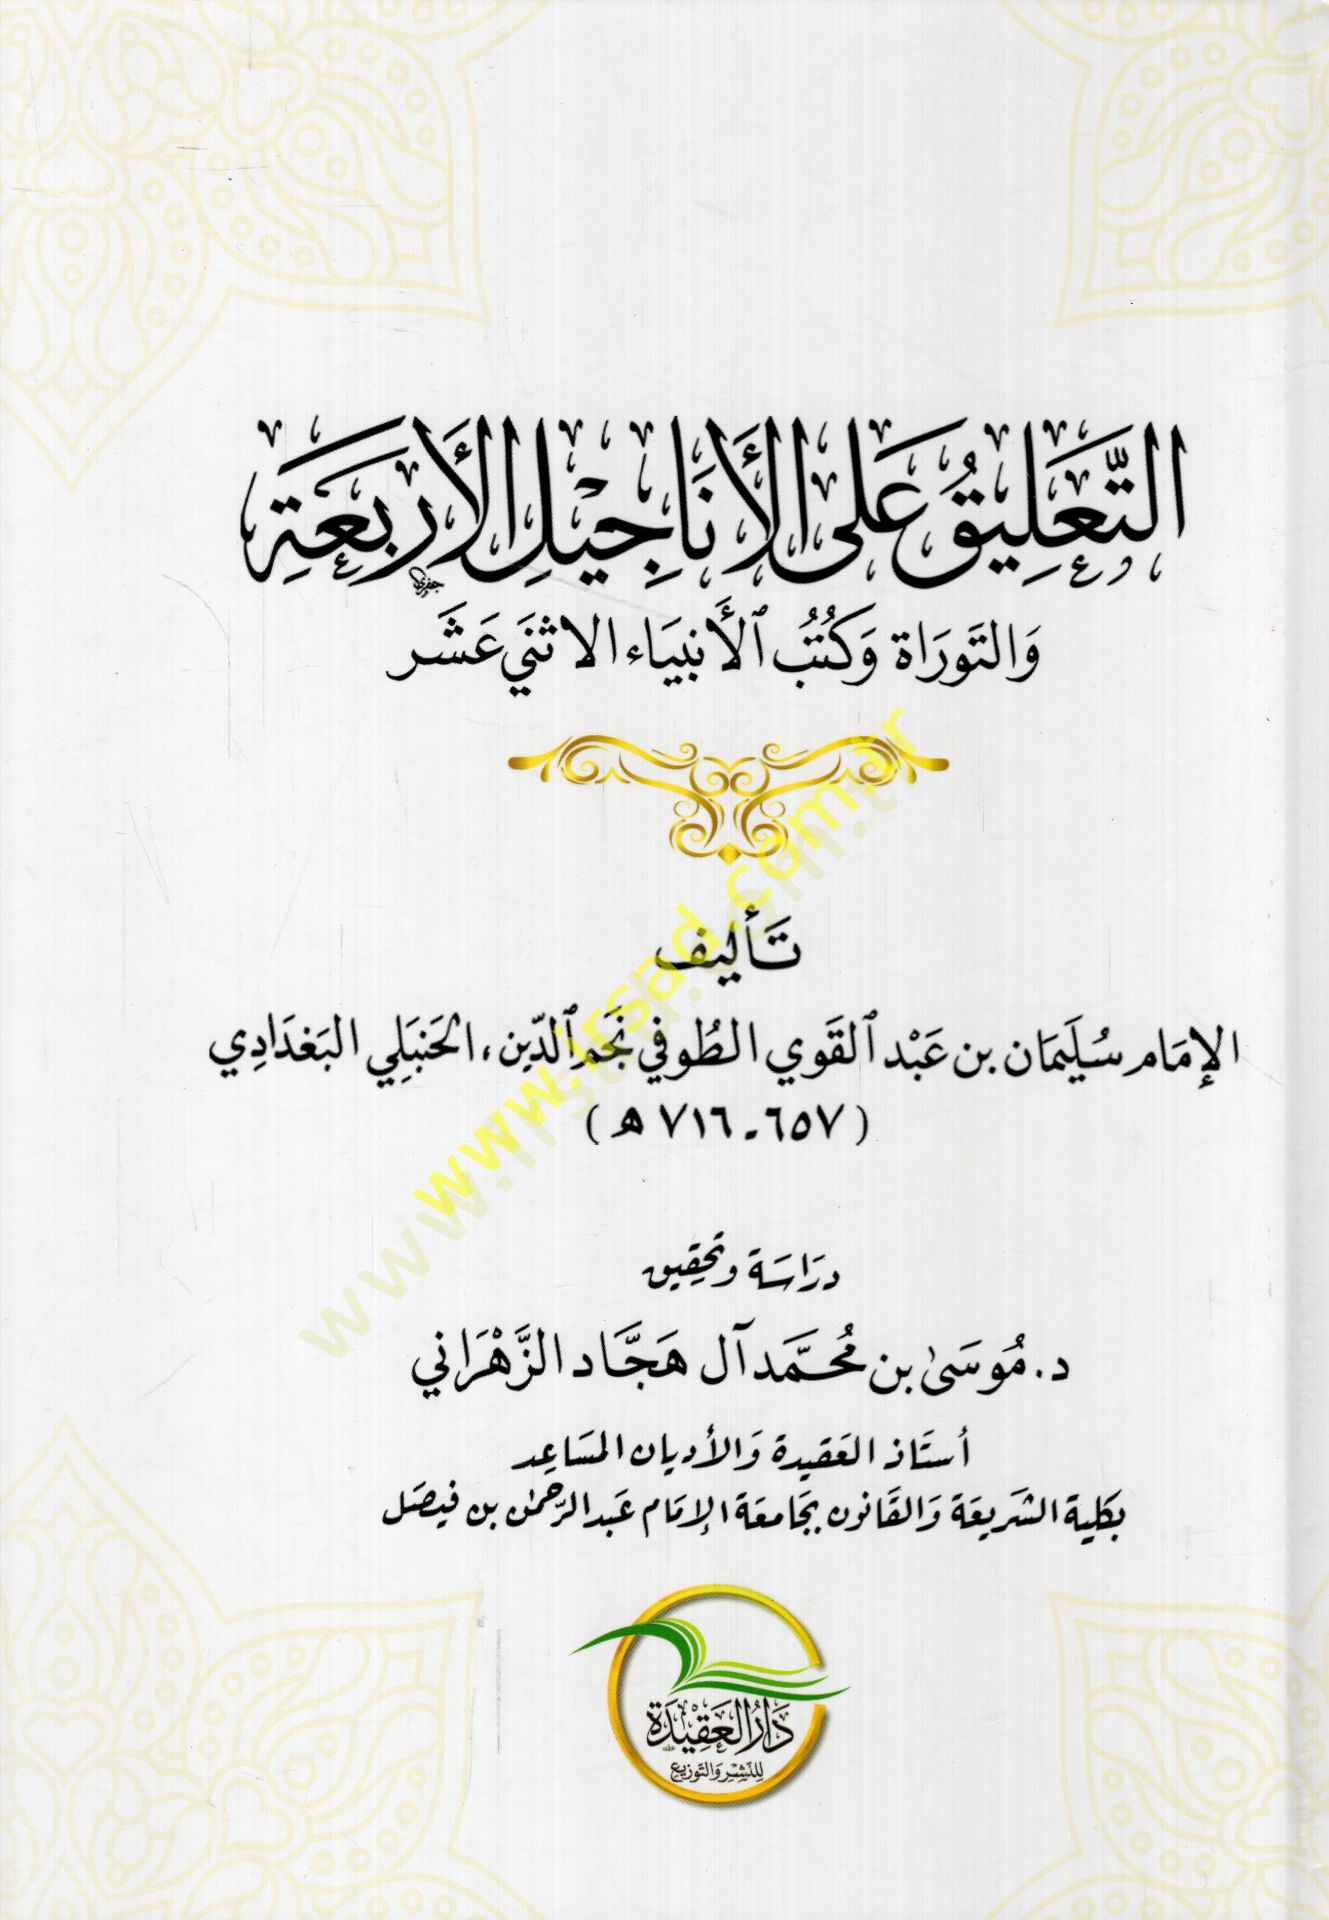 التَّعَلِيقُ عَلَى الأَنَاجِيْلِ الأَرْبَعَةِ
وَالتَورَاة وَكُتُب الأَنبيَاء الاثنَي عَشَر
تَأليف
الإمَام سُلَيمَان بن عَبْد القَوي الطُوفي نَجَم الدِّين، الحَنبَلِي البَغدَادِي
(٦٥٧ - ٧١٦ هـ)
دِرَاسَة وتحقِيق
د. مُوسَى بن مُحَمَّد آل هَجَّاد الزَّهْرَاني
أستَاذ العَقيدة وَالأديان المسَاعِد
بكلية الشَريعَة وَالقَانون بجَامعَة الإمَام عَبد الرَّحمن بن فيصَل
دَارُ العَقِيْدَة
لِلنَّشْرِ وَالتَوزيع
www.irsad.com.tr